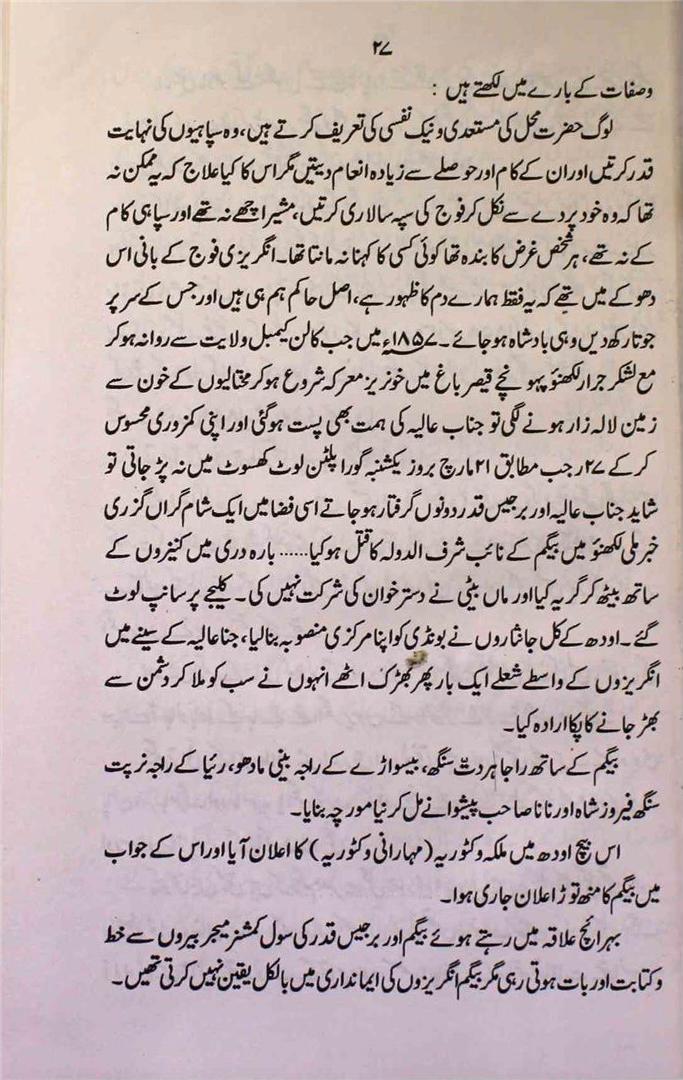 ۲۷
وصفات کے بارے میں لکھتے ہیں :
لوگ حضرت محل کی مستعدی و نیک نفسی کی تعریف کرتے ہیں، وہ سپاہیوں کی نہایت
قدر کرتیں اور ان کے کام اور حوصلے سے زیادہ انعام دیتیں مگر اس کا کیا علاج کہ یہ ممکن نہ
تھا کہ وہ خود پردے سے نکل کر فوج کی سپہ سالاری کرتیں، مشیر اچھے نہ تھے اور سپاہی کام
کے نہ تھے، ہر شخص غرض کا بندہ تھا کوئی کسی کا کہنا نہ مانتا تھا۔ انگریزی فوج کے باغی اس
دھوکے میں تھے کہ یہ فقط ہمارے دم کا ظہور ہے، اصل حاکم ہم ہی ہیں اور جس کے سر پر
جوتا رکھ دیں وہی بادشاہ ہو جائے۔ ۱۸۵۷ء میں جب کالن کیمبل ولایت سے روانہ ہو کر
مع لشکر جرار لکھنؤ پہونچے قیصر باغ میں خونریز معرکہ شروع ہو کر مختالیوں کے خون سے
زمین لالہ زار ہونے لگی تو جناب عالیہ کی ہمت بھی پست ہو گئی اور اپنی کمزوری محسوس
کر کے ۲۷ رجب مطابق ۲۱ مارچ بروز یکشنبہ گورا پلٹن لوٹ کھسوٹ میں نہ پڑ جاتی تو
شاید جناب عالیہ اور برجیس قدر دونوں گرفتار ہو جاتے اسی فضا میں ایک شام گراں گزری
خبر ملی لکھنؤ میں بیگم کے نائب شرف الدولہ کا قتل ہو گیا...... بارہ دری میں کنیزوں کے
ساتھ بیٹھ کر گریہ کیا اور ماں بیٹی نے دسترخوان کی شرکت نہیں کی۔ کلیجے پر سانپ لوٹ
گئے۔ اودھ کے کل جانثاروں نے بونڈی کو اپنا مرکزی منصوبہ بنا لیا، جنا عالیہ کے سینے میں
انگریزوں کے واسطے شعلے ایک بار پھر بھڑک اٹھے انہوں نے سب کو ملا کر دشمن سے
بھڑ جانے کا پکا ارادہ کیا۔
بیگم کے ساتھ راجا ہردت سنگھ، بیسواڑے کے راجہ بینی مادھو، رئیا کے راجہ نرپت
سنگھ فیروز شاہ اور نانا صاحب پیشوا نے مل کر نیا مورچہ بنایا۔
اس بیچ اودھ میں ملکہ وکٹوریہ (مہارانی وکٹوریہ) کا اعلان آیا اور اس کے جواب
میں بیگم کا منھ توڑ اعلان جاری ہوا۔
بہرائچ علاقہ میں رہتے ہوئے بیگم اور برجیس قدر کی سول کمشنر میجر بیروں سے خط
و کتابت اور بات ہوتی رہی مگر بیگم انگریزوں کی ایمانداری میں بالکل یقین نہیں کرتی تھیں۔